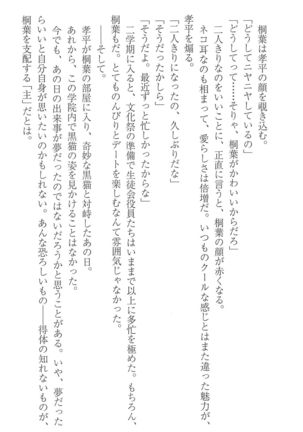 桐葉は孝平の顔を覗き込む。
「どうしてニヤニヤしているの」
「どうしてって……そりゃ、桐葉がかわいいからだろ」
二人きりなのをいいことに、正直に言うと、桐葉の顔が赤くなる。
ネコ耳なのも相まって、愛らしさは倍増だ。いつものクールな感じとはまた違った魅力が、
孝平を煽る。
「二人きりになったの、久しぶりだな」
「そうだったかしら」
「そうだよ。最近ずっと忙しかったからな」
二学期に入ると、文化祭の準備で生徒会役員たちはいままで以上に多忙を極めた。もちろん、
桐葉もだ。とてものんびりとデートを楽しむなんて雰囲気じゃなかった。
――そして。
孝平が桐葉の部屋に入り、奇妙な黒猫と対峙したあの日。
あれから、この学院内で黒猫の姿を見かけることはなかった。
今でも、あの日の出来事が夢だったのではないだろうかと思うことがある。いや、夢だった
らいいと自分自身が思いたいのかもしれない。あんな恐ろしいもの――得体の知れないものが、
桐葉を支配する「主」だとは。